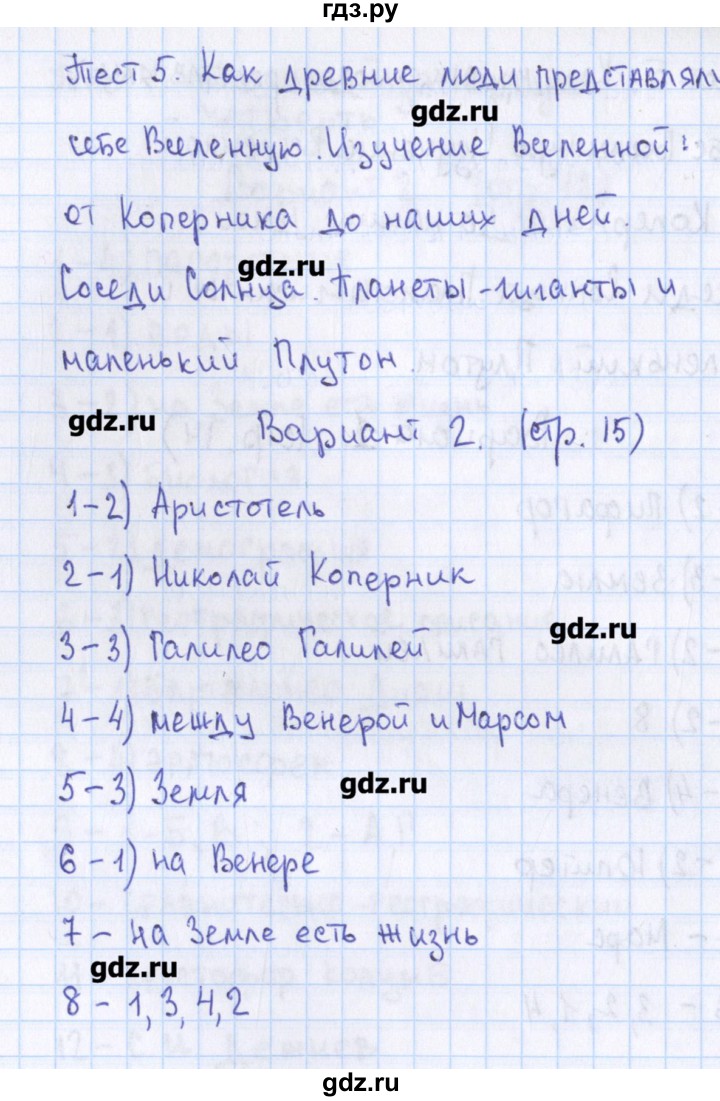 гдз.ру
Тест 5. Как древние люди представляли
gdz.ru
себе Вселенную. Изучение Вселенной:
от Коперника до наших дней.
gdz.ru
Соседи Солнца. Планеты-гиганты и
маленький Плутон.
gdz.ru
Вариант 2. (стр. 15)
1-2) Аристотель
2-1) Николай Коперник
gdz.ru
3-3) Галилео Галилей
4-4) между Венерой и Марсом
gdz.ru
5-3) Земля
6-1) на Венере
7- на Земле есть жизнь
gdz.ru
8 - 1, 3, 4, 2
gdz.ru